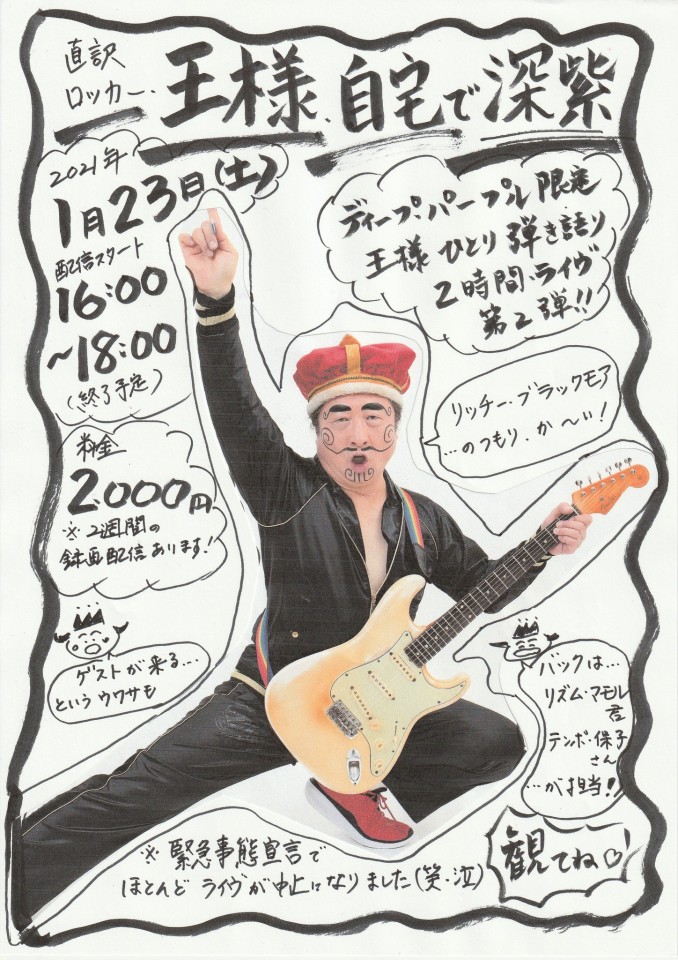 直訳
ロッカー・王様、自宅で深紫
2021年
1月23日(土)
配信スタート
16:00
~18:00
(終了予定)
ディープ・パープル限定
王様ひとり弾き語り
2時間・ライヴ
第2弾!!
リッチー・ブラックモア
…のつもり、か〜い!
料金
2.000円
※2週間の
録画配信あります!
ゲストが来る…
というウワサも
バックは…
リズム・マモル
君
テンポ・保子
さん
…が担当!
※緊急事態宣言で
ほとんどライヴが中止になりました(笑・泣)
観てね♡